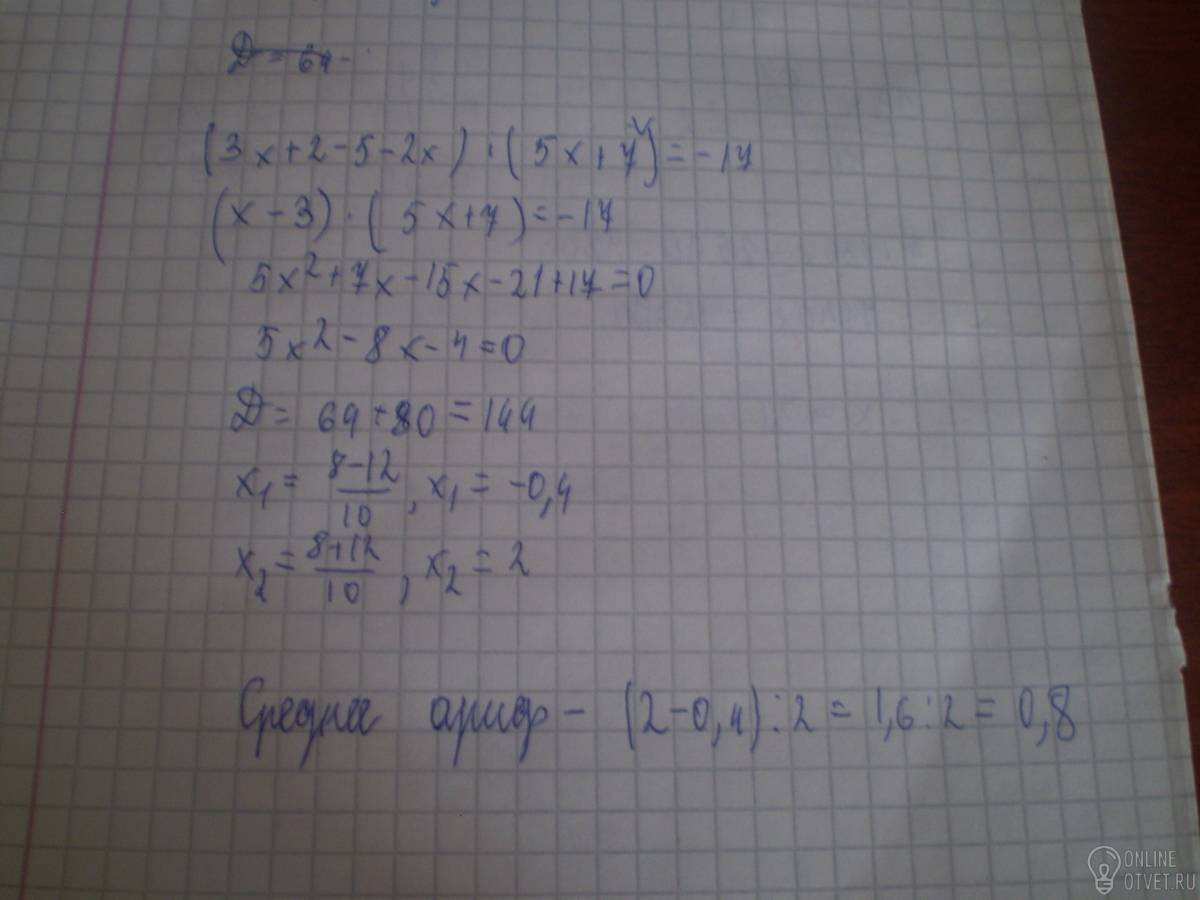 D = 64 -
(3x+2-5-2x)·(5x+7)=-17
(x-3)·(5x+7)=-17
5x²+7x-15x-21+17=0
5x²-8x-4=0
D = 64+80=144
x₁ = 8-12/10, x₁ = -0,4
x₂ = 8+12/10, x₂ = 2
Среднее ариф - (2-0,4):2 = 1,6:2 = 0,8
ONLINE
OTVET.RU